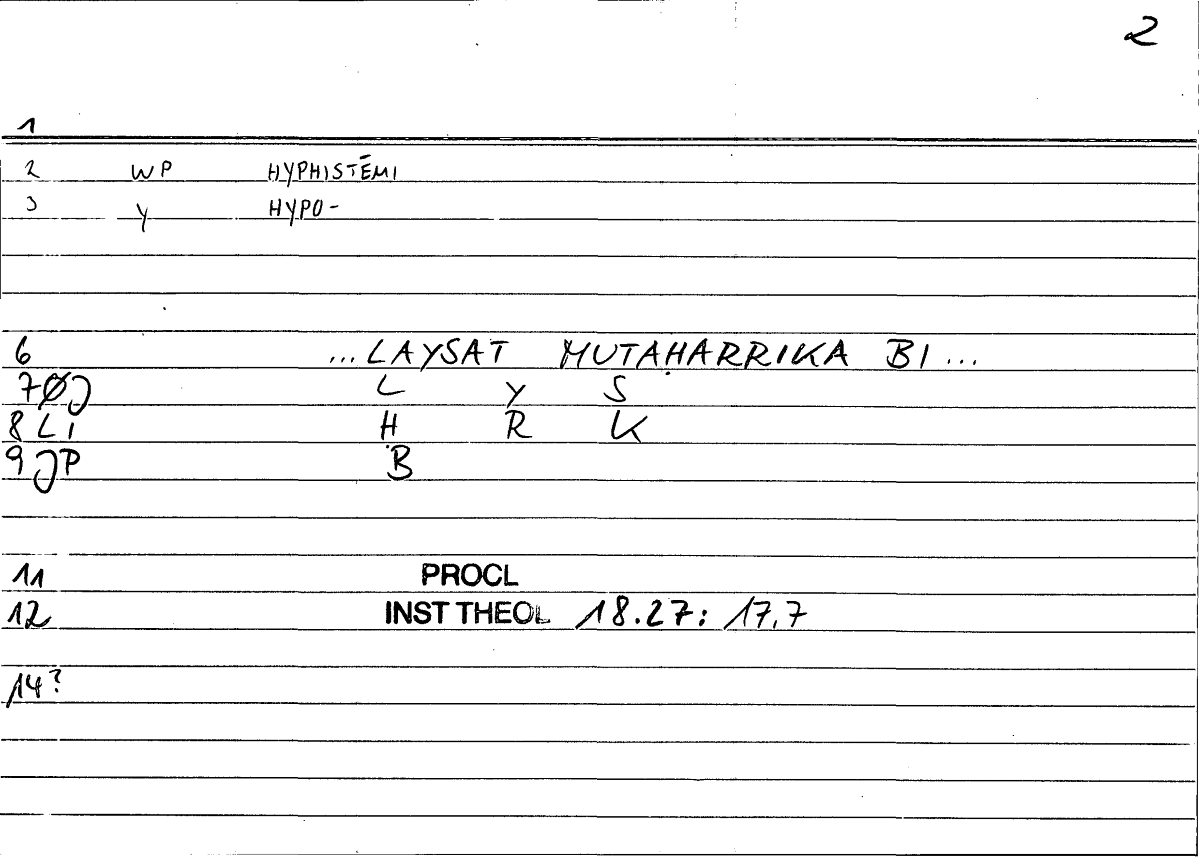 2
1
2 WP HYPHISTĒMI
3 Y HYPO-
6 ...LAYSAT MUTAḤARRIKA BI...
7ØJ L Y S
8 LI Ḥ R K
9 JP B
11 PROCL
12 INST THEOL 18.27: 17,7
14?